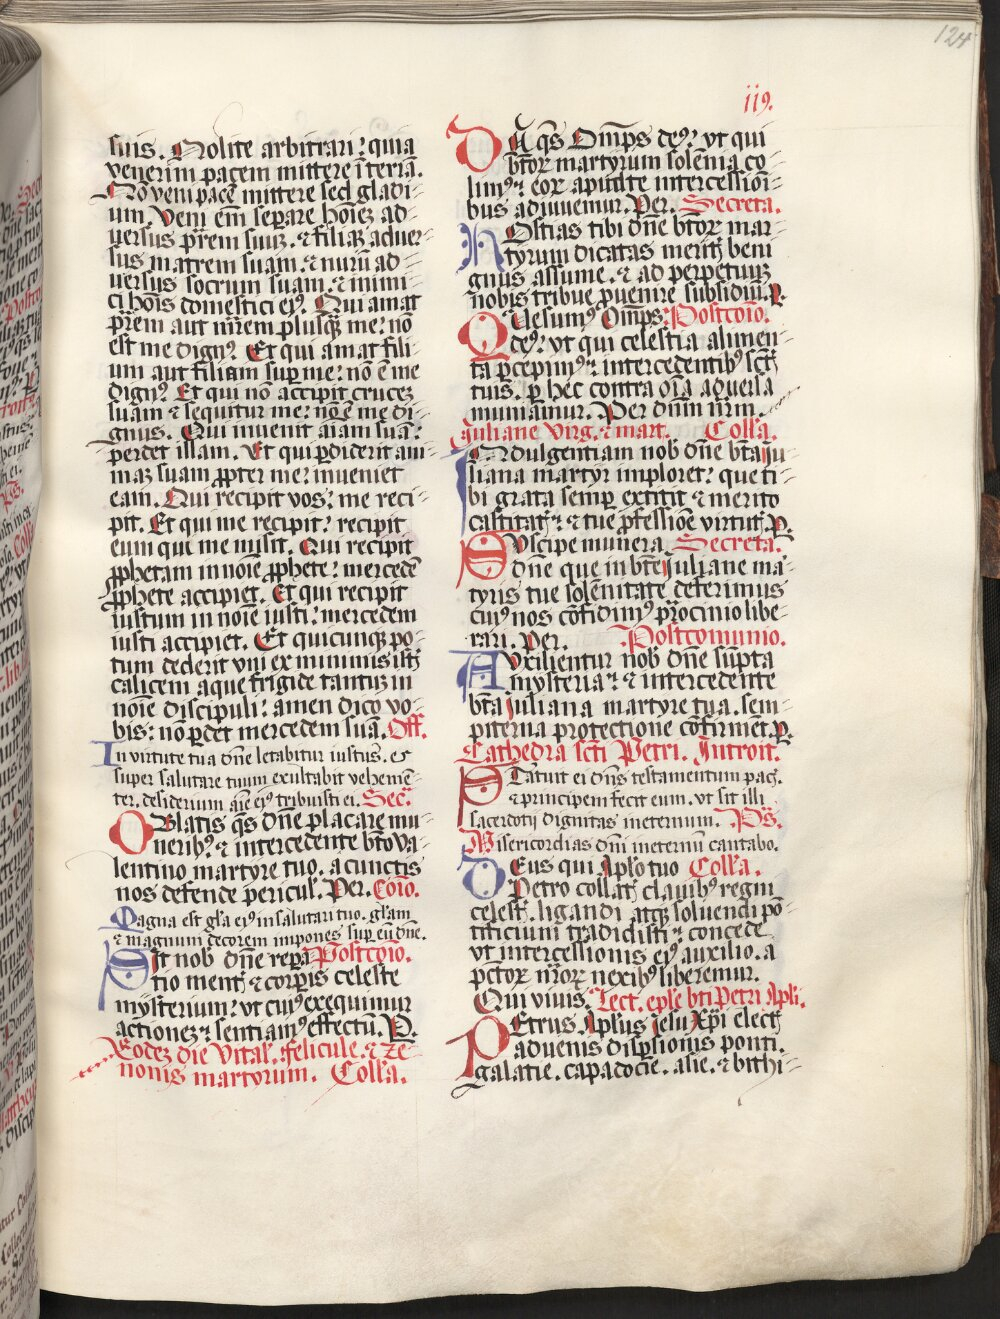 124
119.
suis. Nolite arbitrari: quia
venerim pacem mittere ī terrā.
Nō veni pacē mittere sed gladi-
um. Veni em̄ separe hoīez ad-
versus p̄rem suuz. ⁊ filiaz adver-
sus matrem suam. ⁊ nurū ad-
versus socrum suam. ⁊ inimi-
ci hoīs domestici eiꝰ. Qui amat
p̄rem aut mr̄em plusqz me: nō
est me dignꝰ. Et qui amat fili-
um aut filiam sup me: nō ē me
dignꝰ. Et qui nō accipit crucez
suam ⁊ sequitur me: nō ē me di-
gnus. Qui invenit aīam suā:
perdet illam. Et qui pdiderit ani-
maz suam ꝓpter me: inveniet
eam. Qui recipit vos: me reci-
pit. Et qui me recipit: recipit
eum qui me misit. Qui recipit
ꝓphetam in noīe ꝓphete: mercedē
ꝓphete accipiet. Et qui recipit
iustum in noīe iusti: mercedem
iusti accipiet. Et quicunqz po-
tum dederit vni ex minimis istꝭ
calicem aque frigide tantuz in
noīe discipuli: amen dico vo-
bis: nō pdet mercedem suā. Off.
In virtute tua dn̄e letabitur iustus. et
super salutare tuum exultabit vehemē-
ter. desiderium aīe eiꝰ tribuisti ei. Secr̄.
Oblatis qs̄ dn̄e placare mu-
neribꝰ: ⁊ intercedente bt̄o Va-
lentino martore tuo. a cunctis
nos defende pericul. Per. Cōio.
Magna est gl̄a eiꝰ in salutari tuo. gl̄am
⁊ magnum decorem impones sup eū dn̄e.
Sit nob dn̄e repa- Postcōio.
tio mentꝭ ⁊ corpis celeste
mysterium: vt cuiꝰ exequimur
actionez: sentiamꝰ effectū. P.
Eodez die Vital. felicule. ⁊ ze-
nonis martorum. Coll̄a.
Da qs̄ Omp̄s deꝰ: vt qui
bt̄oꝝ martyrum solēnia co-
limꝰ: eoꝝ apud te intercessiōi-
bus adiuvemur. Per. Secreta.
Hostias tibi dn̄e bt̄oꝝ mar-
tyrum dicatas meritꝭ beni
gnus assume. ⁊ ad perpetuuz
nobis tribue pvenire subsidiū. P.
Quesumꝰ Omp̄s Postcōio.
deꝰ: vt qui celestia alimen-
ta pcepimꝰ: intercedentibꝰ sctꝭ
tuis. p hec contra oīa adversa
muniamur. Per dn̄m nr̄m.
Juliane Virg. ⁊ mart. Coll̄a.
Indulgentiam nob dn̄e bt̄a iu-
liana martyr imploret: que ti-
bi grata semp extitit ⁊ merito
castitatꝭ ⁊ tue pfessiōe virtutꝭ. P.
Suscipe munera Secreta.
dn̄e que in bt̄e juliane ma-
tyris tue solēnitate deferimus
cuiꝰ nos cōfidimꝰ pr̄ocinio libe-
rari. Per. Postcomunio.
Auxilientur nob dn̄e sūpta
mysteria: ⁊ intercedente
bt̄a juliana martyre tua. sem-
piterna protectione cōfirment. P.
Cathedra scti Petri. Introit.
Statuit ei dn̄s testamentum pacꝭ.
⁊ principem fecit eum. vt sit illi
sacerdotij dignitas ineternum. Ps.
Misericordias dn̄i ineternū cantabo.
Deus qui Aplo tuo Coll̄a.
Petro collatꝭ clavibꝰ regni
celestꝭ. ligandi atqz solvendi pō-
tificium tradidisti: concede
vt intercessionis eiꝰ auxilio. a
pctoꝝ nr̄oꝝ nexibꝰ liberemur.
Qui vivis. Lect. epl̄e bt̄i Petri Apl̄i.
Petrus Apl̄us jesu Xp̄i electꝭ
advenis disp̄sionis ponti.
galatie. capadocie. asie. ⁊ bithi-